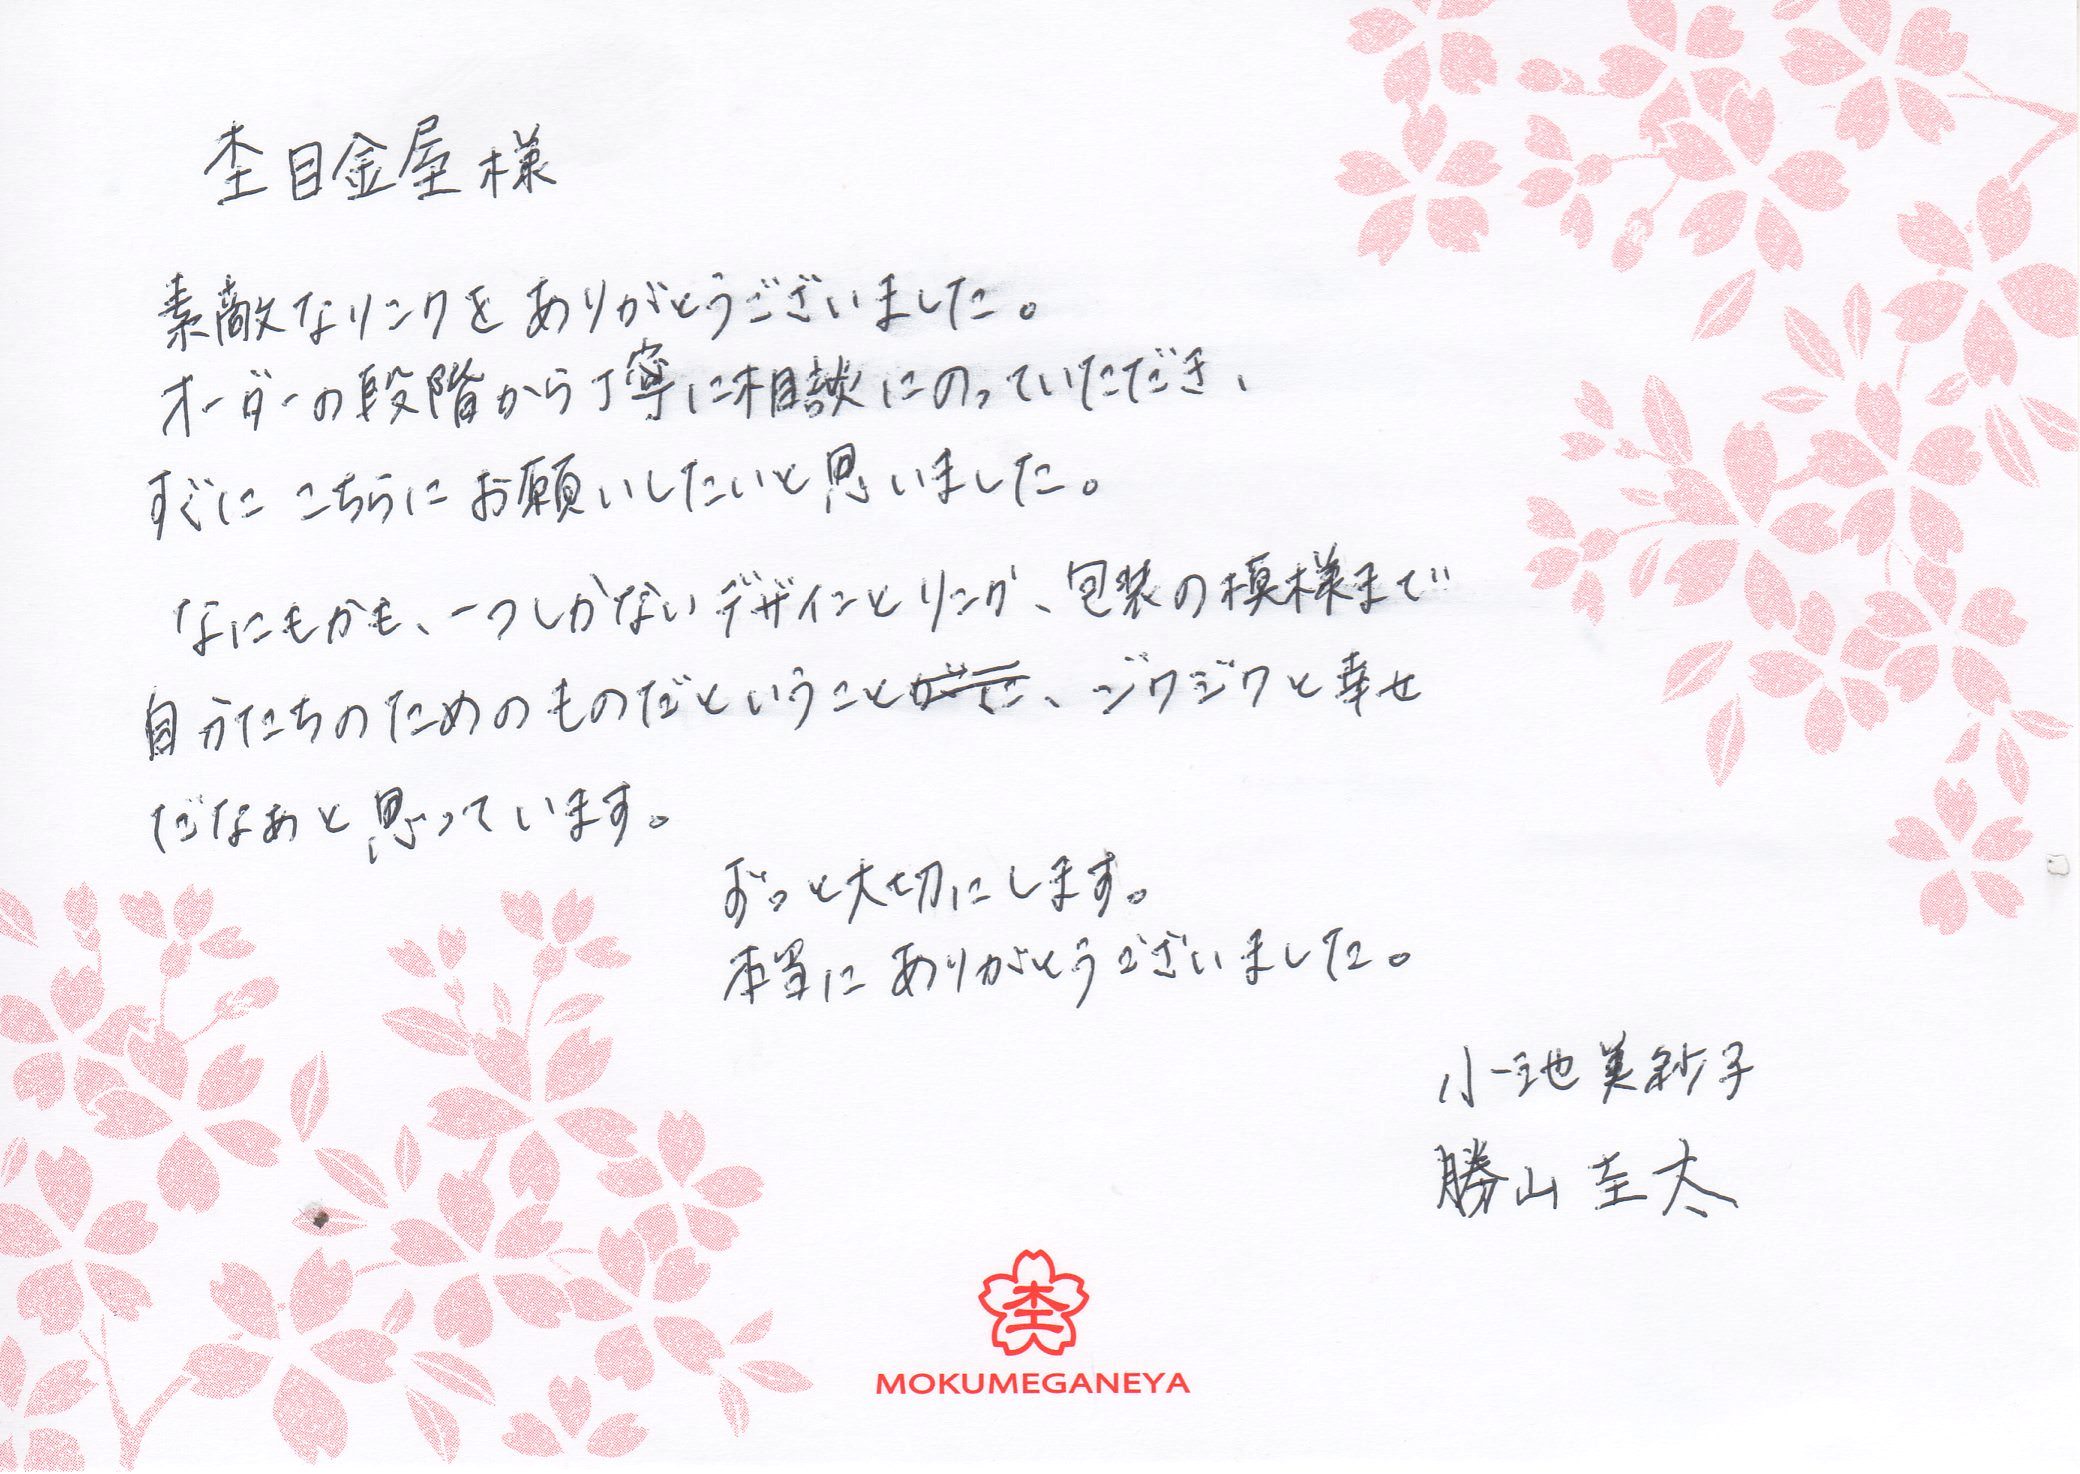 杢目金屋様
素敵なリンクを ありがとうございました。
オーダーの段階から丁寧に相談にのっていただき、
すぐに こちらに お願いしたいと思いました。
なにもかも、一つしかないデザインとリング、包装の模様まで
自分たちのためのものだということ、ジワジワと幸せ
だなぁと思っています。
ずっと大切にします。
本当に ありがとうございました。
小池美紗子
勝山圭太
杢
MOKUMEGANEYA